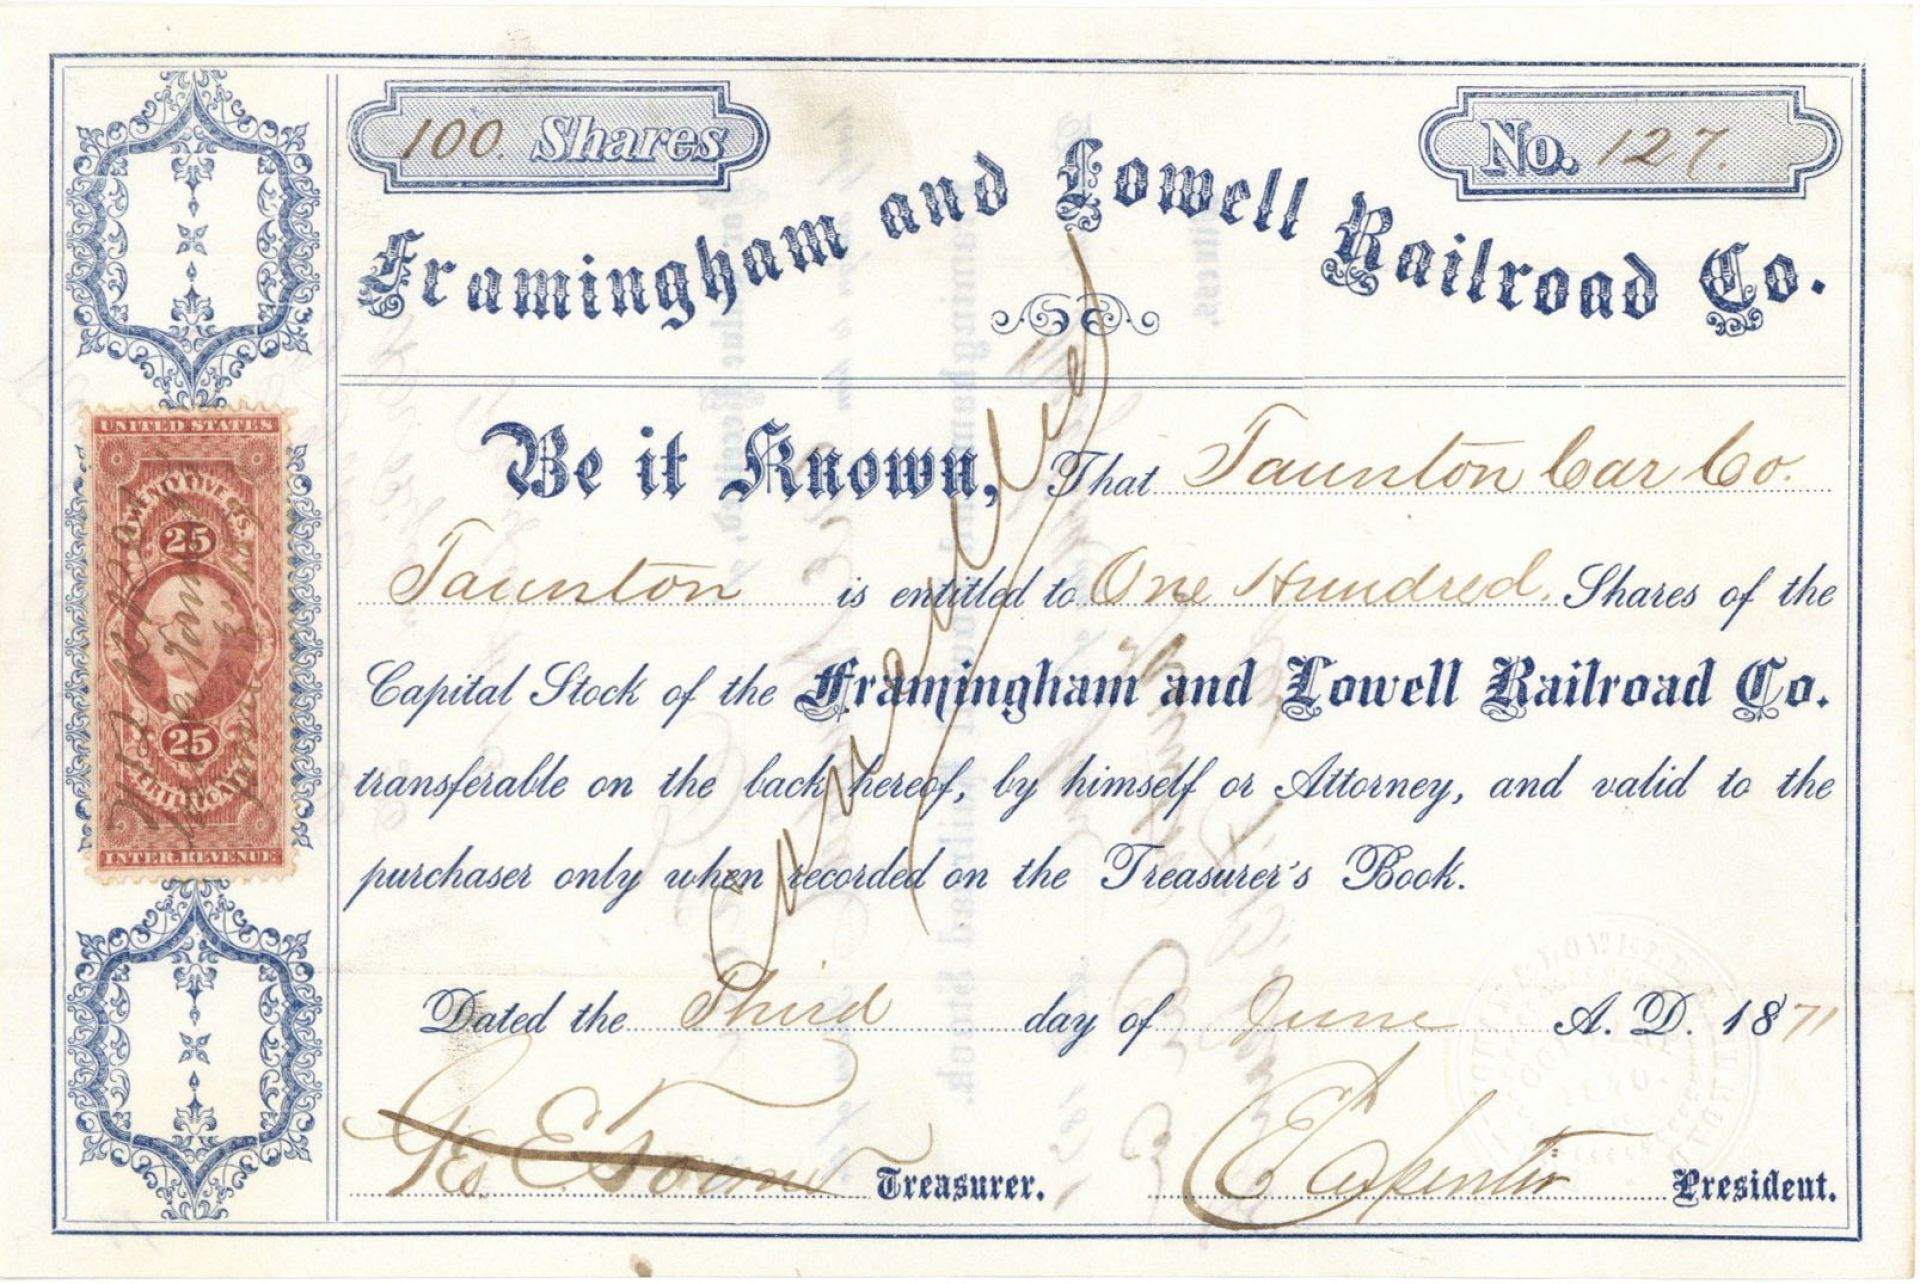 100. Shares
No. 127.
Framingham and Lowell Railroad Co.
Be it Known, That Taunton Car Co.
Taunton is entitled to One Hundred. Shares of the
Capital Stock of the Framingham and Lowell Railroad Co.
transferable on the back hereof, by himself or Attorney, and valid to the
purchaser only when recorded on the Treasurer's Book.
Cancelled
Dated the Third day of June A. D. 1871
Geo E Treasurer.
E Carpenter President.
UNITED STATES
TWENTY FIVE CTS.
25
25
INTER. REVENUE